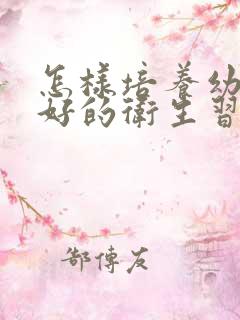 怎樣培養幼
好的衛生習
郜傳友